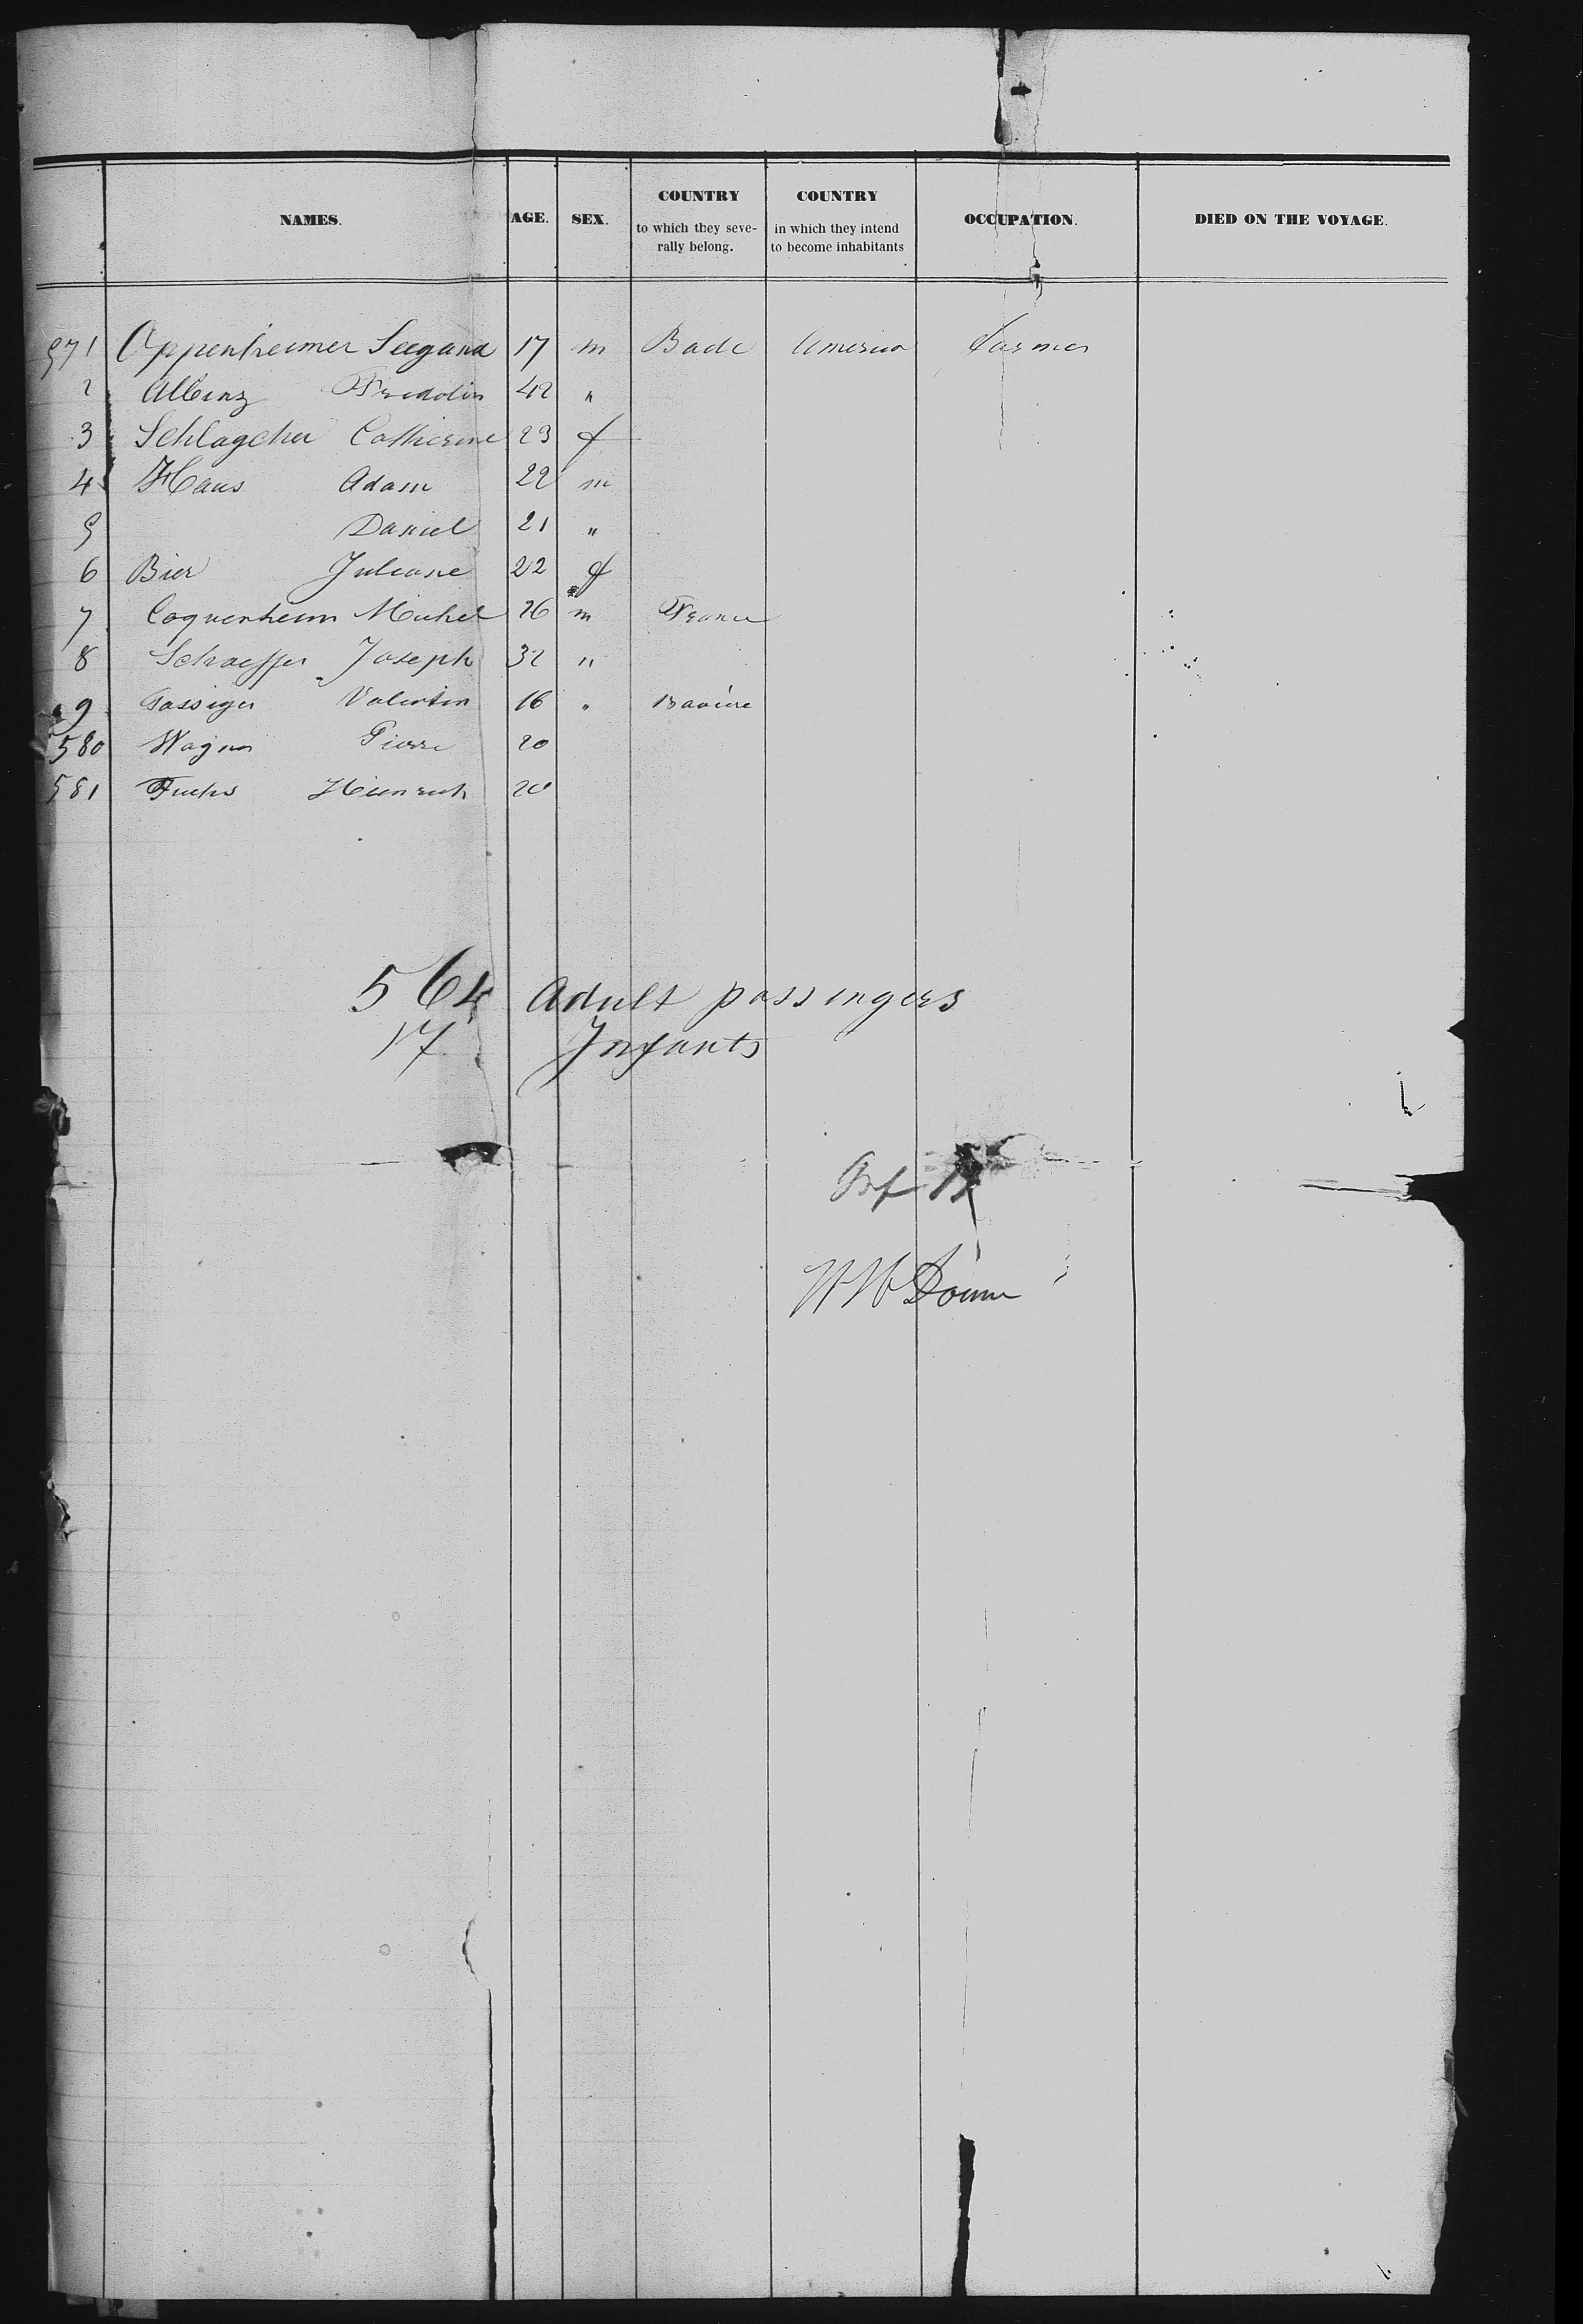 NAMES. AGE. SEX. COUNTRY to which they severally belong. COUNTRY in which they intend to become inhabitants OCCUPATION. DIED ON THE VOYAGE.
571 Oppenheimer 17 m Bade America farmer
2 Albinz Fridolin 42 "
3 Schlageter Catherine 23 f
4 Haus Adam 22 m
5 Daniel 21 "
6 Bier Juliane 22 f
7 Coquenheim Michel 26 m France
8 Schaeffer Joseph 32 "
9 Valentin 16 " Bavière
580 Wagner Pierre 20
581 Fuchs Heinrich 20
564 Adult passingers
17 Infants